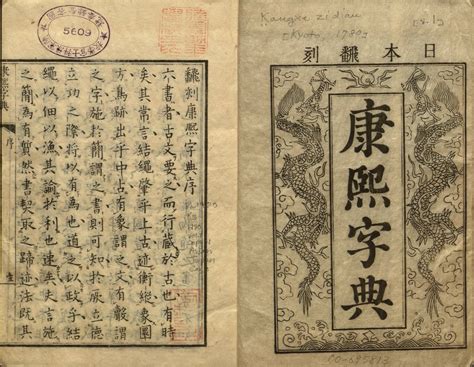 Kangxi zidian
(Kyoto, 1780)
日本飜刻
康熙字典
飜刻康熙字典序
六書者古文要之而行藏於古也有時
矣其常言結繩肇乎上古迹衡縱象圓
方焉跡出乎中古有像謂之文有謂
之字施於簡謂之書則可知於厥立德
立功之際將以有為也道之以政乎結
繩以佃以漁其諭於利也速矣史言施
之簡為有然書契取之歸迹法既其
康熙字典
序
5609